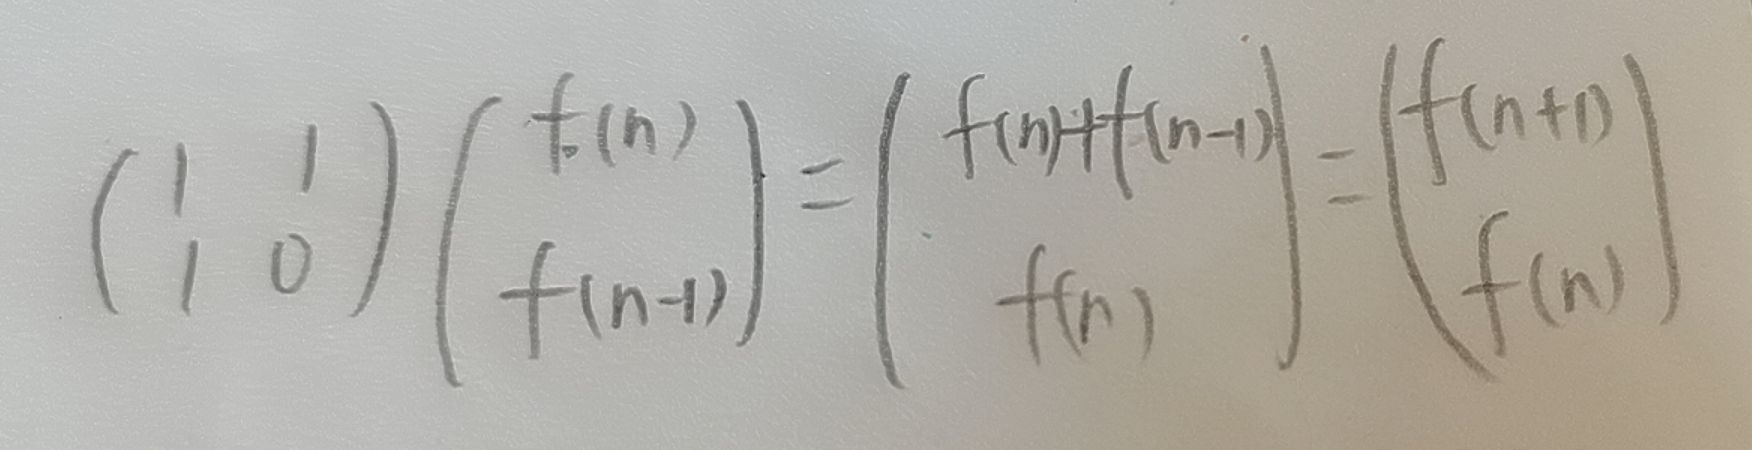 (1 1
1 0) (f(n)
f(n-1)) = (f(n)+f(n-1)
f(n)) = (f(n+1)
f(n))